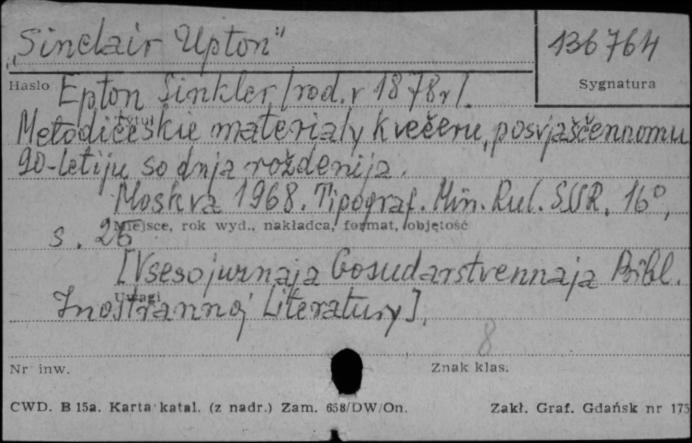 „Sinclair Upton"
136764
Hasło
Sygnatura
Epton Sinkler /rod. v 1878 v/.
Tytuł
Metodičeskie materialy k večeru, posvjaščennomu
90-letiju so dnja roždenija.
Moskva 1968. Tipograf. Min. Kul. SSSR. 16°,
Miejsce, rok wyd., nakładca, format, objętość
s. 26
[Vsesojuznaja Gosudarstvennaja Bibl.
Uwagi
Inostrannoj Literatury].
8
Nr inw.
Znak klas.
CWD. B 15a. Karta katal. (z nadr.) Zam. 658/DW/On.
Zakł. Graf. Gdańsk nr 175